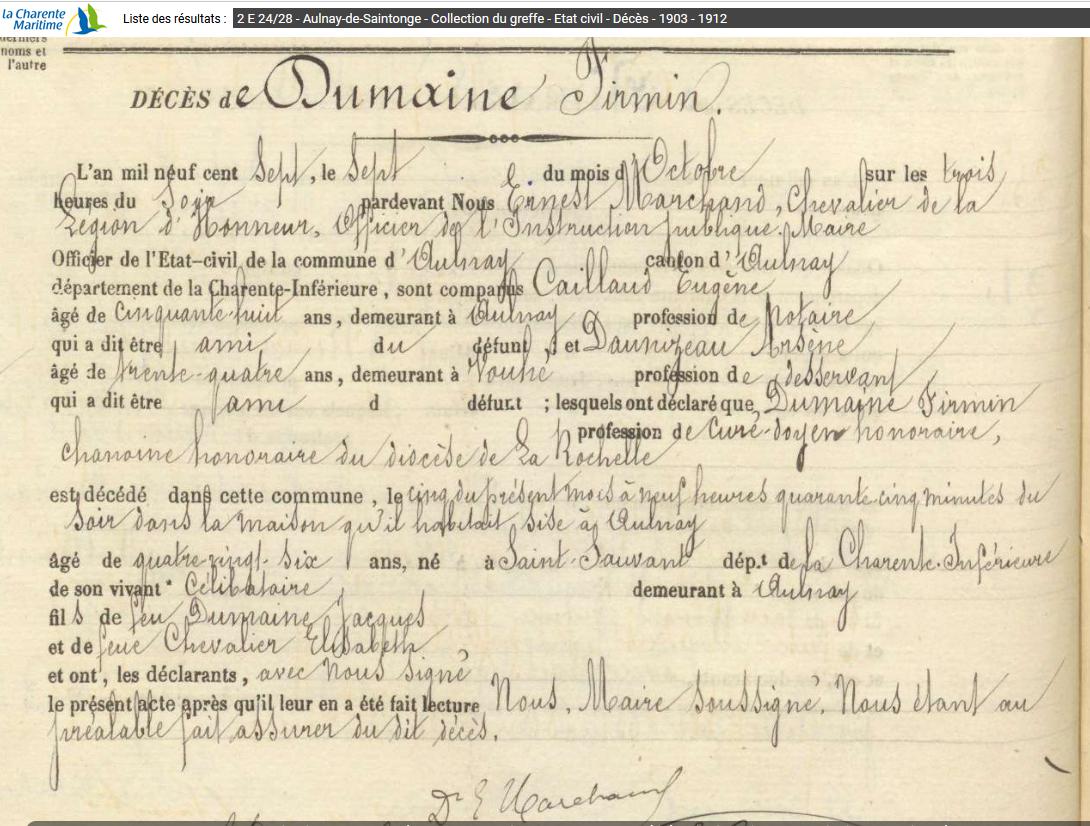 la Charente
Maritime
Liste des résultats : 2 E 24/28 - Aulnay-de-Saintonge - Collection du greffe - Etat civil - Décès - 1903 - 1912
noms et
l'autre
DÉCÈS de Dumaine Firmin.
L'an mil neuf cent Sept, le Sept du mois d'Octobre sur les trois
heures du Soir pardevant Nous Ernest Marchand, Chevalier de la
Légion d'Honneur, Officier de l'Instruction publique. Maire
Officier de l'Etat-civil de la commune d'Aulnay canton d'Aulnay
département de la Charente-Inférieure, sont comparus Caillaud Eugène
âgé de Cinquante-huit ans, demeurant à Aulnay profession de Notaire
qui a dit être ami du défunt, et Daunizeau Arsène
âgé de trente-quatre ans, demeurant à Vouhé profession de desservant
qui a dit être ami d défunt ; lesquels ont déclaré que Dumaine Firmin
profession de Curé-doyen honoraire,
chanoine honoraire du diocèse de La Rochelle
est décédé dans cette commune, le cinq du présent mois à neuf heures quarante-cinq minutes du
Soir dans la maison qu'il habitait sise à Aulnay
âgé de quatre-vingt-six ans, né à Saint-Sauvant dép.t de la Charente-Inférieure
de son vivant Célibataire demeurant à Aulnay
fils de feu Dumaine Jacques
et de feue Chevalier Elisabeth
et ont, les déclarants, avec Nous signé
le présent acte après qu'il leur en a été fait lecture Nous, Maire soussigné. Nous étant au
préalable fait assurer du dit décès.
Dr E Marchand